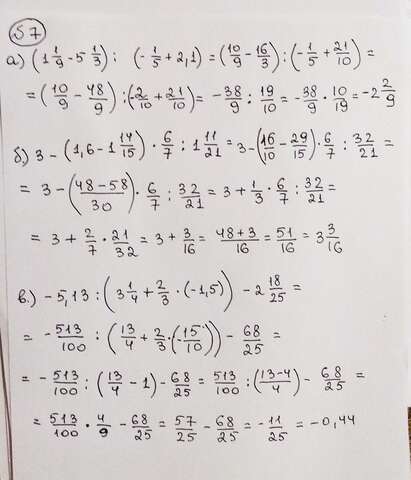 57
а) (1 1/9 - 5 1/3) : (-1/5 + 2,1) = (10/9 - 16/3) : (-1/5 + 21/10) =
= (10/9 - 48/9) : (-2/10 + 21/10) = -38/9 : 19/10 = -38/9 · 10/19 = -2 2/9
б) 3 - (1,6 - 1 14/15) · 6/7 : 1 11/21 = 3 - (16/10 - 29/15) · 6/7 : 32/21 =
= 3 - (48-58/30) · 6/7 : 32/21 = 3 + 1/3 · 6/7 : 32/21 =
= 3 + 2/7 · 21/32 = 3 + 3/16 = 48+3/16 = 51/16 = 3 3/16
в.) -5,13 : (3 1/4 + 2/3 · (-1,5)) - 2 18/25 =
= -513/100 : (13/4 + 2/3 · (-15/10)) - 68/25 =
= -513/100 : (13/4 - 1) - 68/25 = 513/100 : (13-4/4) - 68/25 =
= 513/100 · 4/9 - 68/25 = 57/25 - 68/25 = -11/25 = -0,44